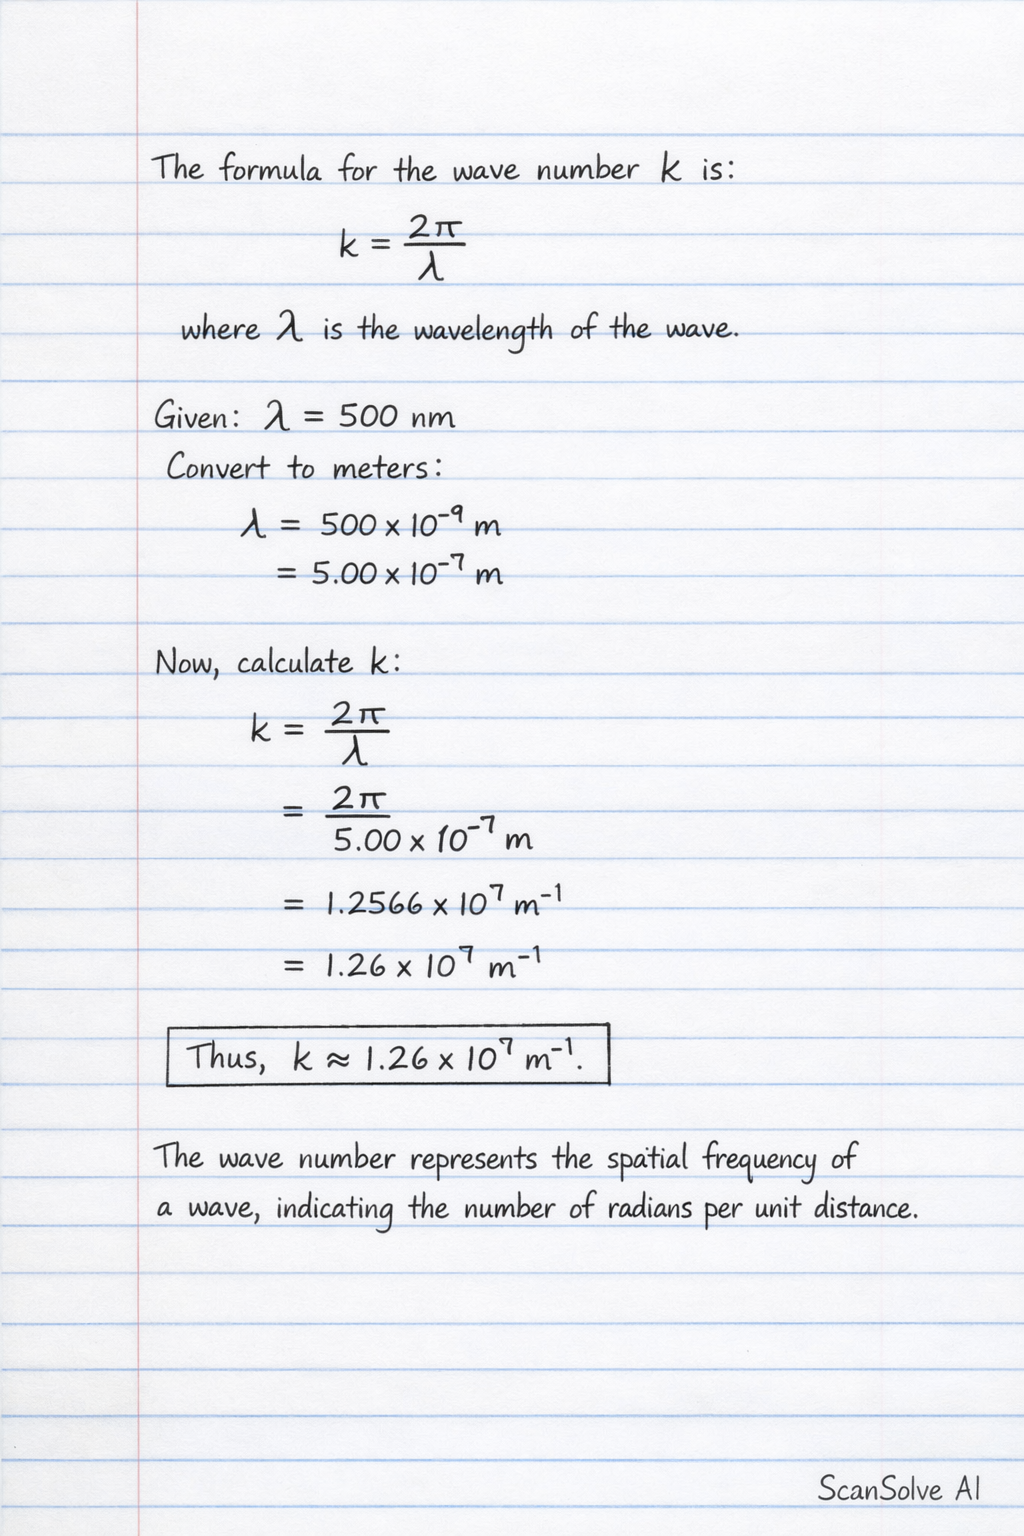 The formula for the wave number k is:
k = 2π/λ
where λ is the wavelength of the wave.
Given: λ = 500 nm
Convert to meters:
λ = 500 × 10⁻⁹ m
= 5.00 × 10⁻⁷ m
Now, calculate k:
k = 2π/λ
= 2π/5.00 × 10⁻⁷ m
= 1.2566 × 10⁷ m⁻¹
= 1.26 × 10⁷ m⁻¹
Thus, k ≈ 1.26 × 10⁷ m⁻¹.
The wave number represents the spatial frequency of
a wave, indicating the number of radians per unit distance.
ScanSolve AI